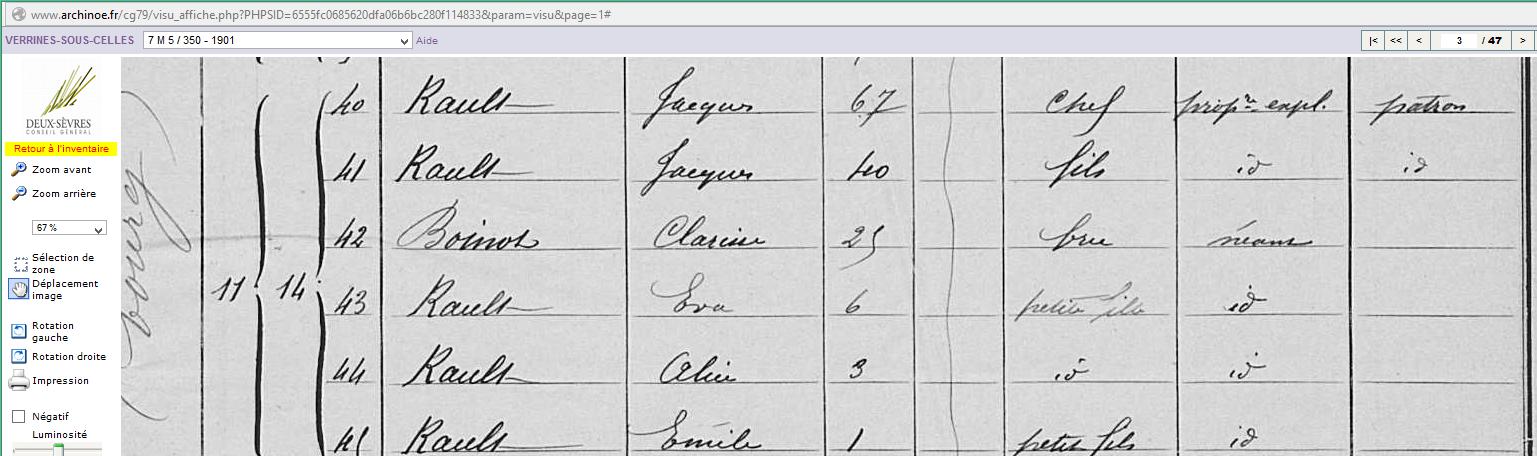 www.archinoe.fr/cg79/visu_affiche.php?PHPSID=6555fc0685620dfa06b6bc280f114833&param=visu&page=1#
VERRINES-SOUS-CELLES 7 M 5 / 350 - 1901 Aide |< << < 3 / 47 >
DEUX-SÈVRES
CONSEIL GÉNÉRAL
Retour à l'inventaire
Zoom avant
Zoom arrière
67 %
Sélection de
zone
Déplacement
image
Rotation
gauche
Rotation droite
Impression
Négatif
Luminosité
bourg
11 14
40 Rault Jacques 67 Chef propre expl. patron
41 Rault Jacques 40 fils id id
42 Boinot Clarisse 25 bru néant
43 Rault Eva 6 petite fille id
44 Rault Alice 3 id id
45 Rault Emile 1 petit fils id